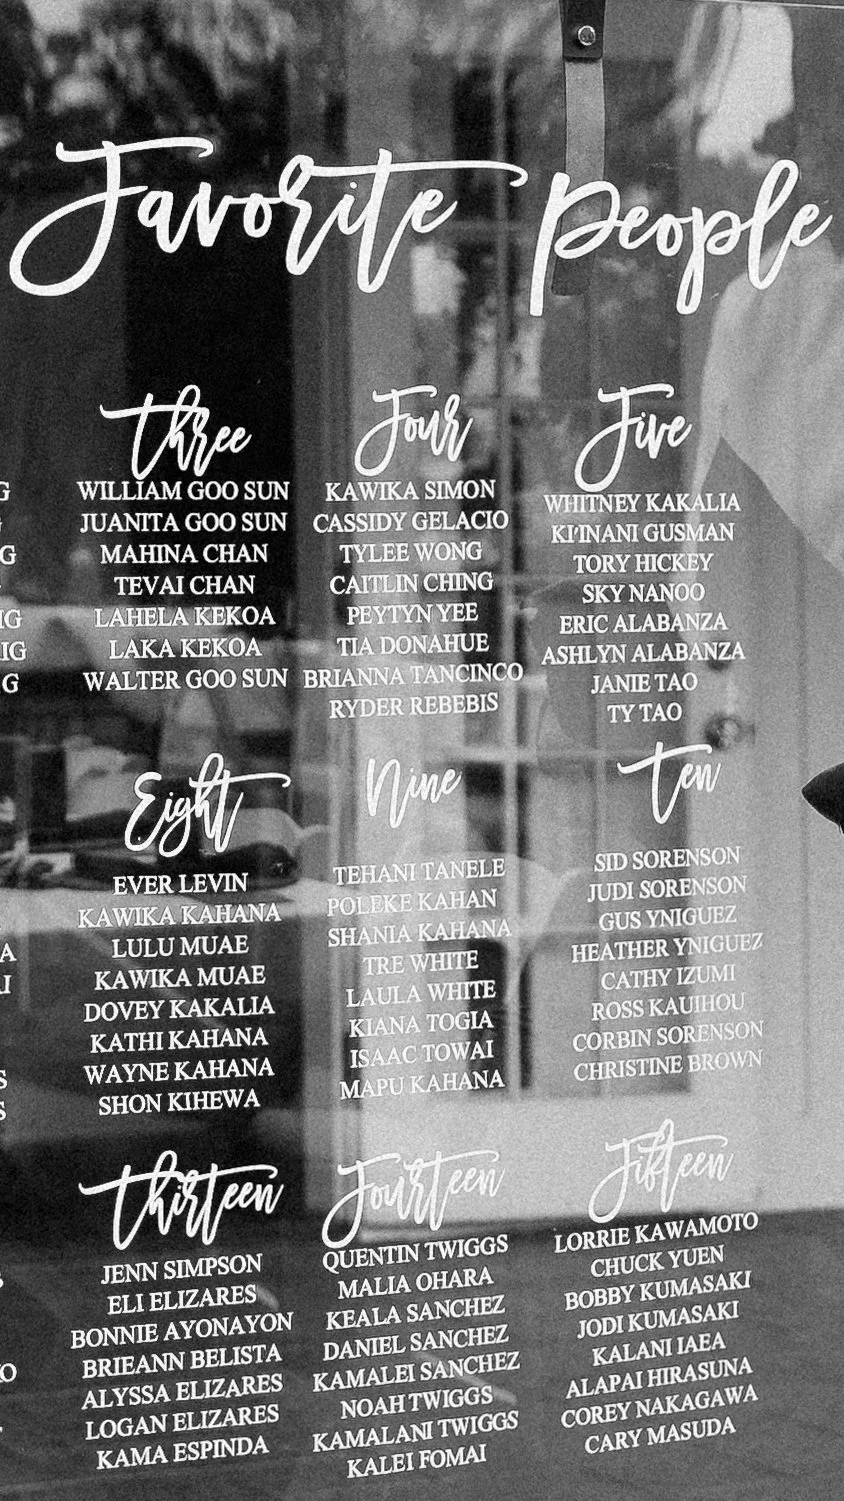 Favorite People
Three
WILLIAM GOO SUN
JUANITA GOO SUN
MAHINA CHAN
TEVAI CHAN
LAHELA KEKOA
LAKA KEKOA
WALTER GOO SUN
Four
KAWIKA SIMON
CASSIDY GELACIO
TYLEE WONG
CAITLIN CHING
PEYTYN YEE
TIA DONAHUE
BRIANNA TANCINCO
RYDER REBEBIS
Five
WHITNEY KAKALIA
KI'INANI GUSMAN
TORY HICKEY
SKY NANOO
ERIC ALABANZA
ASHLYN ALABANZA
JANIE TAO
TY TAO
Eight
EVER LEVIN
KAWIKA KAHANA
LULU MUAE
KAWIKA MUAE
DOVEY KAKALIA
KATHI KAHANA
WAYNE KAHANA
SHON KIHEWA
Nine
TEHANI TANELE
POLEKE KAHAN
SHANIA KAHANA
TRE WHITE
LAULA WHITE
KIANA TOGIA
ISAAC TOWAI
MAPU KAHANA
Ten
SID SORENSON
JUDI SORENSON
GUS YNIGUEZ
HEATHER YNIGUEZ
CATHY IZUMI
ROSS KAUIHOU
CORBIN SORENSON
CHRISTINE BROWN
Thirteen
JENN SIMPSON
ELI ELIZARES
BONNIE AYONAYON
BRIEANN BELISTA
ALYSSA ELIZARES
LOGAN ELIZARES
KAMA ESPINDA
Fourteen
QUENTIN TWIGGS
MALIA OHARA
KEALA SANCHEZ
DANIEL SANCHEZ
KAMALEI SANCHEZ
NOAH TWIGGS
KAMALANI TWIGGS
KALEI FOMAI
Fifteen
LORRIE KAWAMOTO
CHUCK YUEN
BOBBY KUMASAKI
JODI KUMASAKI
KALANI IAEA
ALAPAI HIRASUNA
COREY NAKAGAWA
CARY MASUDA